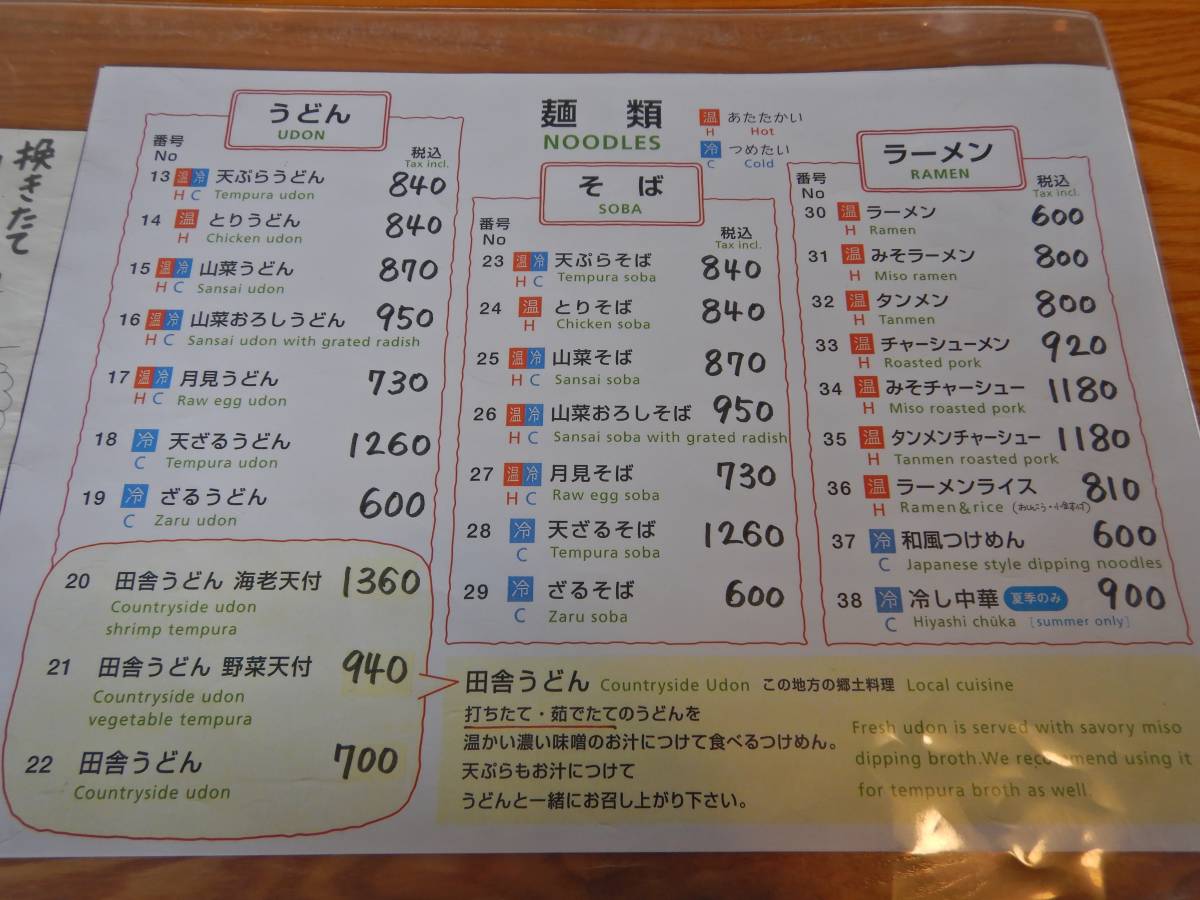 挽きたて
麺 類
NOODLES
温 あたたかい
H Hot
冷 つめたい
C Cold
うどん
UDON
番号
No
税込
Tax incl.
13 温 冷 天ぷらうどん 840
H C Tempura udon
14 温 とりうどん 840
H Chicken udon
15 温 冷 山菜うどん 870
H C Sansai udon
16 温 冷 山菜おろしうどん 950
H C Sansai udon with grated radish
17 温 冷 月見うどん 730
H C Raw egg udon
18 冷 天ざるうどん 1260
C Tempura udon
19 冷 ざるうどん 600
C Zaru udon
20 田舎うどん 海老天付 1360
Countryside udon
shrimp tempura
21 田舎うどん 野菜天付 940
Countryside udon
vegetable tempura
22 田舎うどん 700
Countryside udon
そ ば
SOBA
番号
No
税込
Tax incl.
23 温 冷 天ぷらそば 840
H C Tempura soba
24 温 とりそば 840
H Chicken soba
25 温 冷 山菜そば 870
H C Sansai soba
26 温 冷 山菜おろしそば 950
H C Sansai soba with grated radish
27 温 冷 月見そば 730
H C Raw egg soba
28 冷 天ざるそば 1260
C Tempura soba
29 冷 ざるそば 600
C Zaru soba
ラーメン
RAMEN
番号
No
税込
Tax incl.
30 温 ラーメン 600
H Ramen
31 温 みそラーメン 800
H Miso ramen
32 温 タンメン 800
H Tanmen
33 温 チャーシューメン 920
H Roasted pork
34 温 みそチャーシュー 1180
H Miso roasted pork
35 温 タンメンチャーシュー 1180
H Tanmen roasted pork
36 温 ラーメンライス 810
H Ramen&rice (おしんこう・小鉢付)
37 冷 和風つけめん 600
C Japanese style dipping noodles
38 冷 冷し中華 夏季のみ 900
C Hiyashi chūka [summer only]
田舎うどん Countryside Udon この地方の郷土料理 Local cuisine
打ちたて・茹でたてのうどんを
温かい濃い味噌のお汁につけて食べるつけめん。
天ぷらもお汁につけて
うどんと一緒にお召し上がり下さい。
Fresh udon is served with savory miso
dipping broth.We recommend using it
for tempura broth as well.